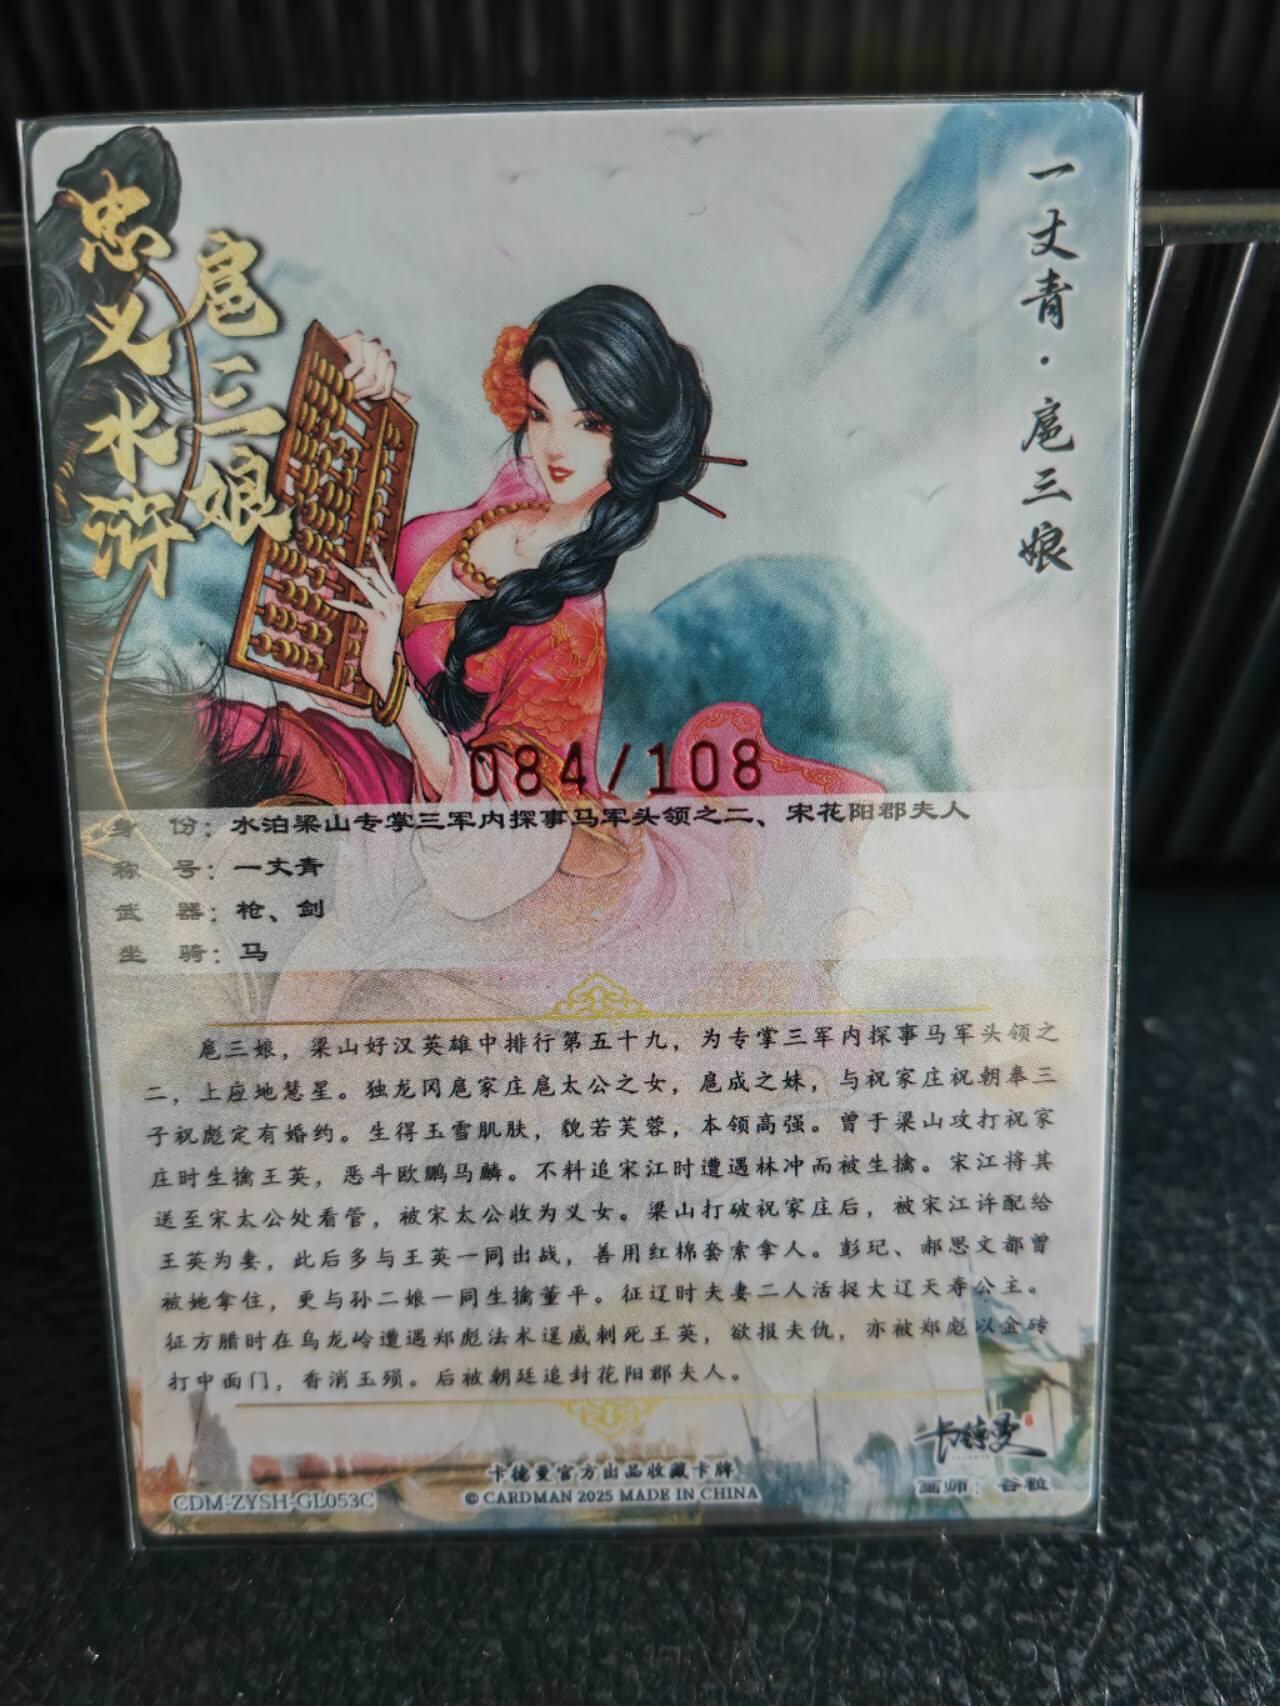 忠义水浒
扈三娘
一丈青·扈三娘
084/108
身 份：水泊梁山专掌三军内探事马军头领之二、宋花阳郡夫人
称 号：一丈青
武 器：枪、剑
坐 骑：马
扈三娘，梁山好汉英雄中排行第五十九，为专掌三军内探事马军头领之
二，上应地慧星。独龙冈扈家庄扈太公之女，扈成之妹，与祝家庄祝朝奉三
子祝彪定有婚约。生得玉雪肌肤，貌若芙蓉，本领高强。曾于梁山攻打祝家
庄时生擒王英，恶斗欧鹏马麟。不料追宋江时遭遇林冲而被生擒。宋江将其
送至宋太公处看管，被宋太公收为义女。梁山打破祝家庄后，被宋江许配给
王英为妻，此后多与王英一同出战，善用红棉套索拿人。彭玘、郝思文都曾
被她拿住，更与孙二娘一同生擒董平。征辽时夫妻二人活捉大辽天寿公主。
征方腊时在乌龙岭遭遇郑彪法术逞威刺死王英，欲报夫仇，亦被郑彪以金砖
打中面门，香消玉殒。后被朝廷追封花阳郡夫人。
卡德曼
卡德曼官方出品收藏卡牌
CDM-ZYSH-GL053C
© CARDMAN 2025 MADE IN CHINA
画师：谷粒